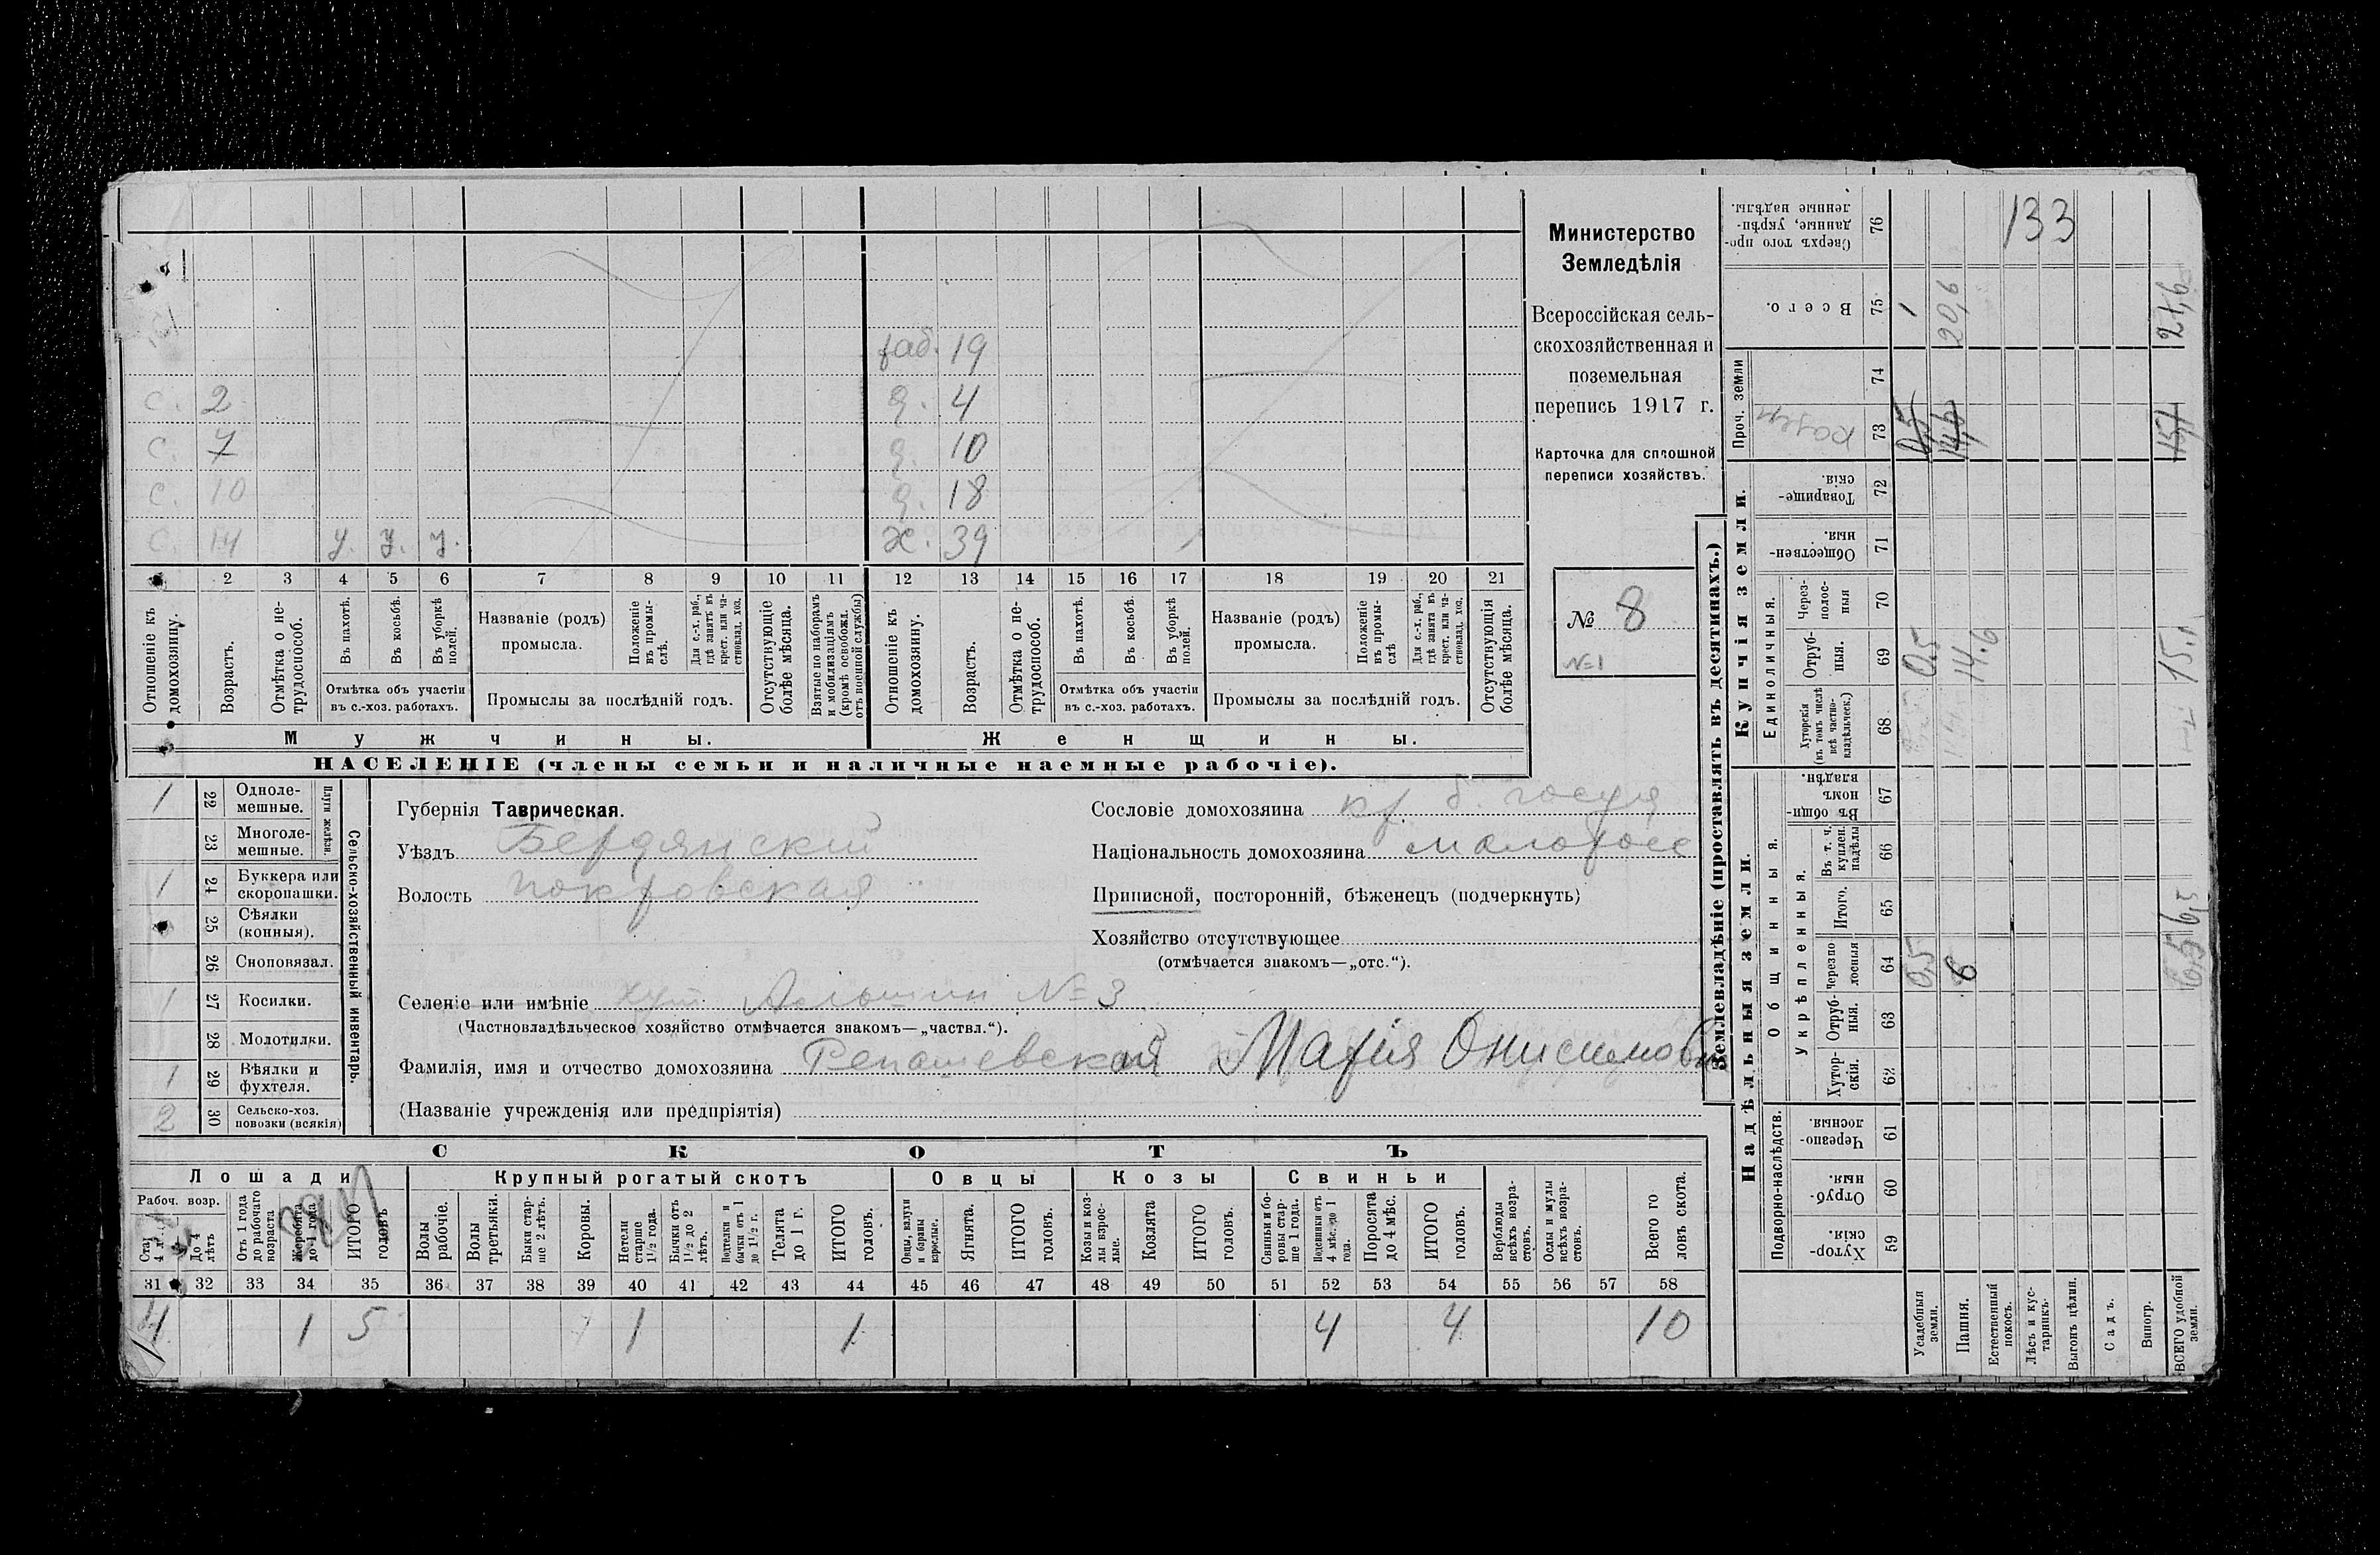 Министерство
Земледѣлія
Всероссійская сель-
скохозяйственная и
поземельная
перепись 1917 г.
Карточка для сплошной
переписи хозяйствъ.
№ 8
№1
раб. 19
с. 2 д. 4
с. 7 д. 10
с. 10 д. 18
с. 14 у. у. у. ж. 39
2 3 4 5 6 7 8 9 10 11 12 13 14 15 16 17 18 19 20 21
Отношеніе къ домохозяину.
Возрастъ.
Отмѣтка о не-трудоспособ.
Въ пахотѣ.
Въ косьбѣ.
Въ уборкѣ полей.
Отмѣтка объ участіи
въ с.-хоз. работахъ.
Названіе (родъ)
промысла.
Положеніе въ промы-слѣ.
Для с.-х. раб., гдѣ занятъ въ крест. или ча-стновлад. хоз.
Промыслы за послѣдній годъ.
Отсутствующіе болѣе мѣсяца.
Взятые по наборамъ и мобилизаціямъ (кромѣ освобожд. отъ военной службы)
Отношеніе къ домохозяину.
Возрастъ.
Отмѣтка о не-трудоспособ.
Въ пахотѣ.
Въ косьбѣ.
Въ уборкѣ полей.
Отмѣтка объ участіи
въ с.-хоз. работахъ.
Названіе (родъ)
промысла.
Положеніе въ промы-слѣ
Для с.-х. раб., гдѣ занята въ крест. или ча-стновлад. хоз.
Промыслы за послѣдній годъ.
Отсутствующія болѣе мѣсяца.
Мужчины. Женщины.
НАСЕЛЕНІЕ (члены семьи и наличные наемные рабочіе).
Сельско-хозяйственный инвентарь.
Плуги желѣзн.
1 22 Одноле-мешные.
23 Многоле-мешные.
1 24 Буккера или скоропашки.
25 Сѣялки (конныя).
26 Сноповязал.
1 27 Косилки.
28 Молотилки.
1 29 Вѣялки и фухтеля.
2 30 Сельско-хоз. повозки (всякія)
Губернія Таврическая.
Уѣздъ Бердянскій
Волость Покровская
Сословіе домохозяина кр. б. госуд
Національность домохозяина малоросс
Приписной, посторонній, бѣженецъ (подчеркнуть)
Хозяйство отсутствующее
(отмѣчается знакомъ—„отс.“).
Селеніе или имѣніе хут. №3
(Частновладѣльческое хозяйство отмѣчается знакомъ—„частвл.“).
Фамилія, имя и отчество домохозяина Марія Онисимовн
(Названіе учрежденія или предпріятія)
СКОТЪ
Лошади Крупный рогатый скотъ Овцы Козы Свиньи
Рабоч. возр.
До 4 лѣтъ
Отъ 1 года до рабочаго возраста
Жеребята до 1 года
ИТОГО головъ
Волы рабочіе.
Волы третьяки.
Быки стар-ше 2 лѣтъ.
Коровы.
Нетели старше 1½ года.
Бычки отъ 1½ до 2 лѣтъ.
Подтелки и бычки отъ 1 до 1½ г.
Телята до 1 г.
ИТОГО головъ.
Овцы, валухи и бараны взрослые.
Ягнята.
ИТОГО головъ.
Козы и коз-лы взрос-лые.
Козлята
ИТОГО головъ.
Свиньи и бо-ровы стар-ше 1 года.
Подсвинки отъ 4 мѣс. до 1 года.
Поросята до 4 мѣс.
ИТОГО головъ.
Верблюды всѣхъ возра-стовъ.
Ослы и мулы всѣхъ возра-стовъ.
Всего го ловъ скота.
31 32 33 34 35 36 37 38 39 40 41 42 43 44 45 46 47 48 49 50 51 52 53 54 55 56 57 58
4 1 5 1 1 4 4 10
Землевладѣніе (проставлять въ десятинахъ.)
Надѣльныя земли. Купчія земли.
Проч. земли
Подворно-наслѣдств.
Общинныя.
Укрѣпленныя.
Единоличныя.
Сверхъ того про-данные, укрѣп-ленные надѣлы. 76 133
Всего. 75 1 20,6 21,6
74
73 0,5 14,6 15,1
Товарище-скія. 72
Обществен-ныя. 71
Через-полос-ныя 70
Отруб-ныя. 69 0,5 14.6 15.1
Хуторскія (въ томъ числѣ всѣ частно-владѣльческ.) 68
Въ общин-номъ владѣн. 67
Въ т. ч. куплен. надѣлы 66
Итого. 65 6,5
Черезпо лосныя 64 0,5 6 6,5
Отруб-ныя. 63
Хутор-скія. 62
Черезпо-лосныя. 61
Отруб-ныя. 60
Хутор-скія. 59
Усадебныя земли.
Пашня.
Естественный покосъ.
Лѣсъ и кус-тарникъ.
Выгонъ цѣлин.
Садъ.
Виногр.
ВСЕГО удобной земли.